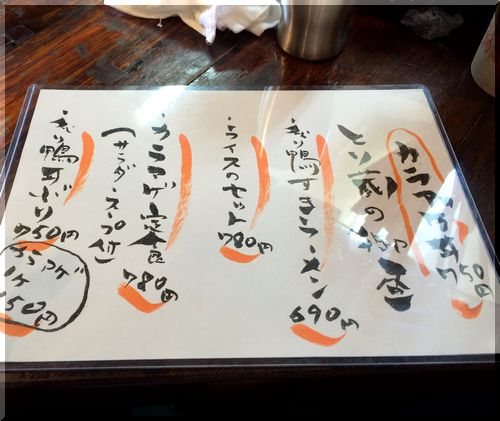 カラアゲ丼 750円
とり蔵の御昼
・ねぎ鴨すきラーメン 690円
・ライスのセット 780円
・カラアゲ定食 780円
(サラダ・スープ付)
・ねぎ鴨丼ぶり 750円
カラアゲ
1ケ
150円